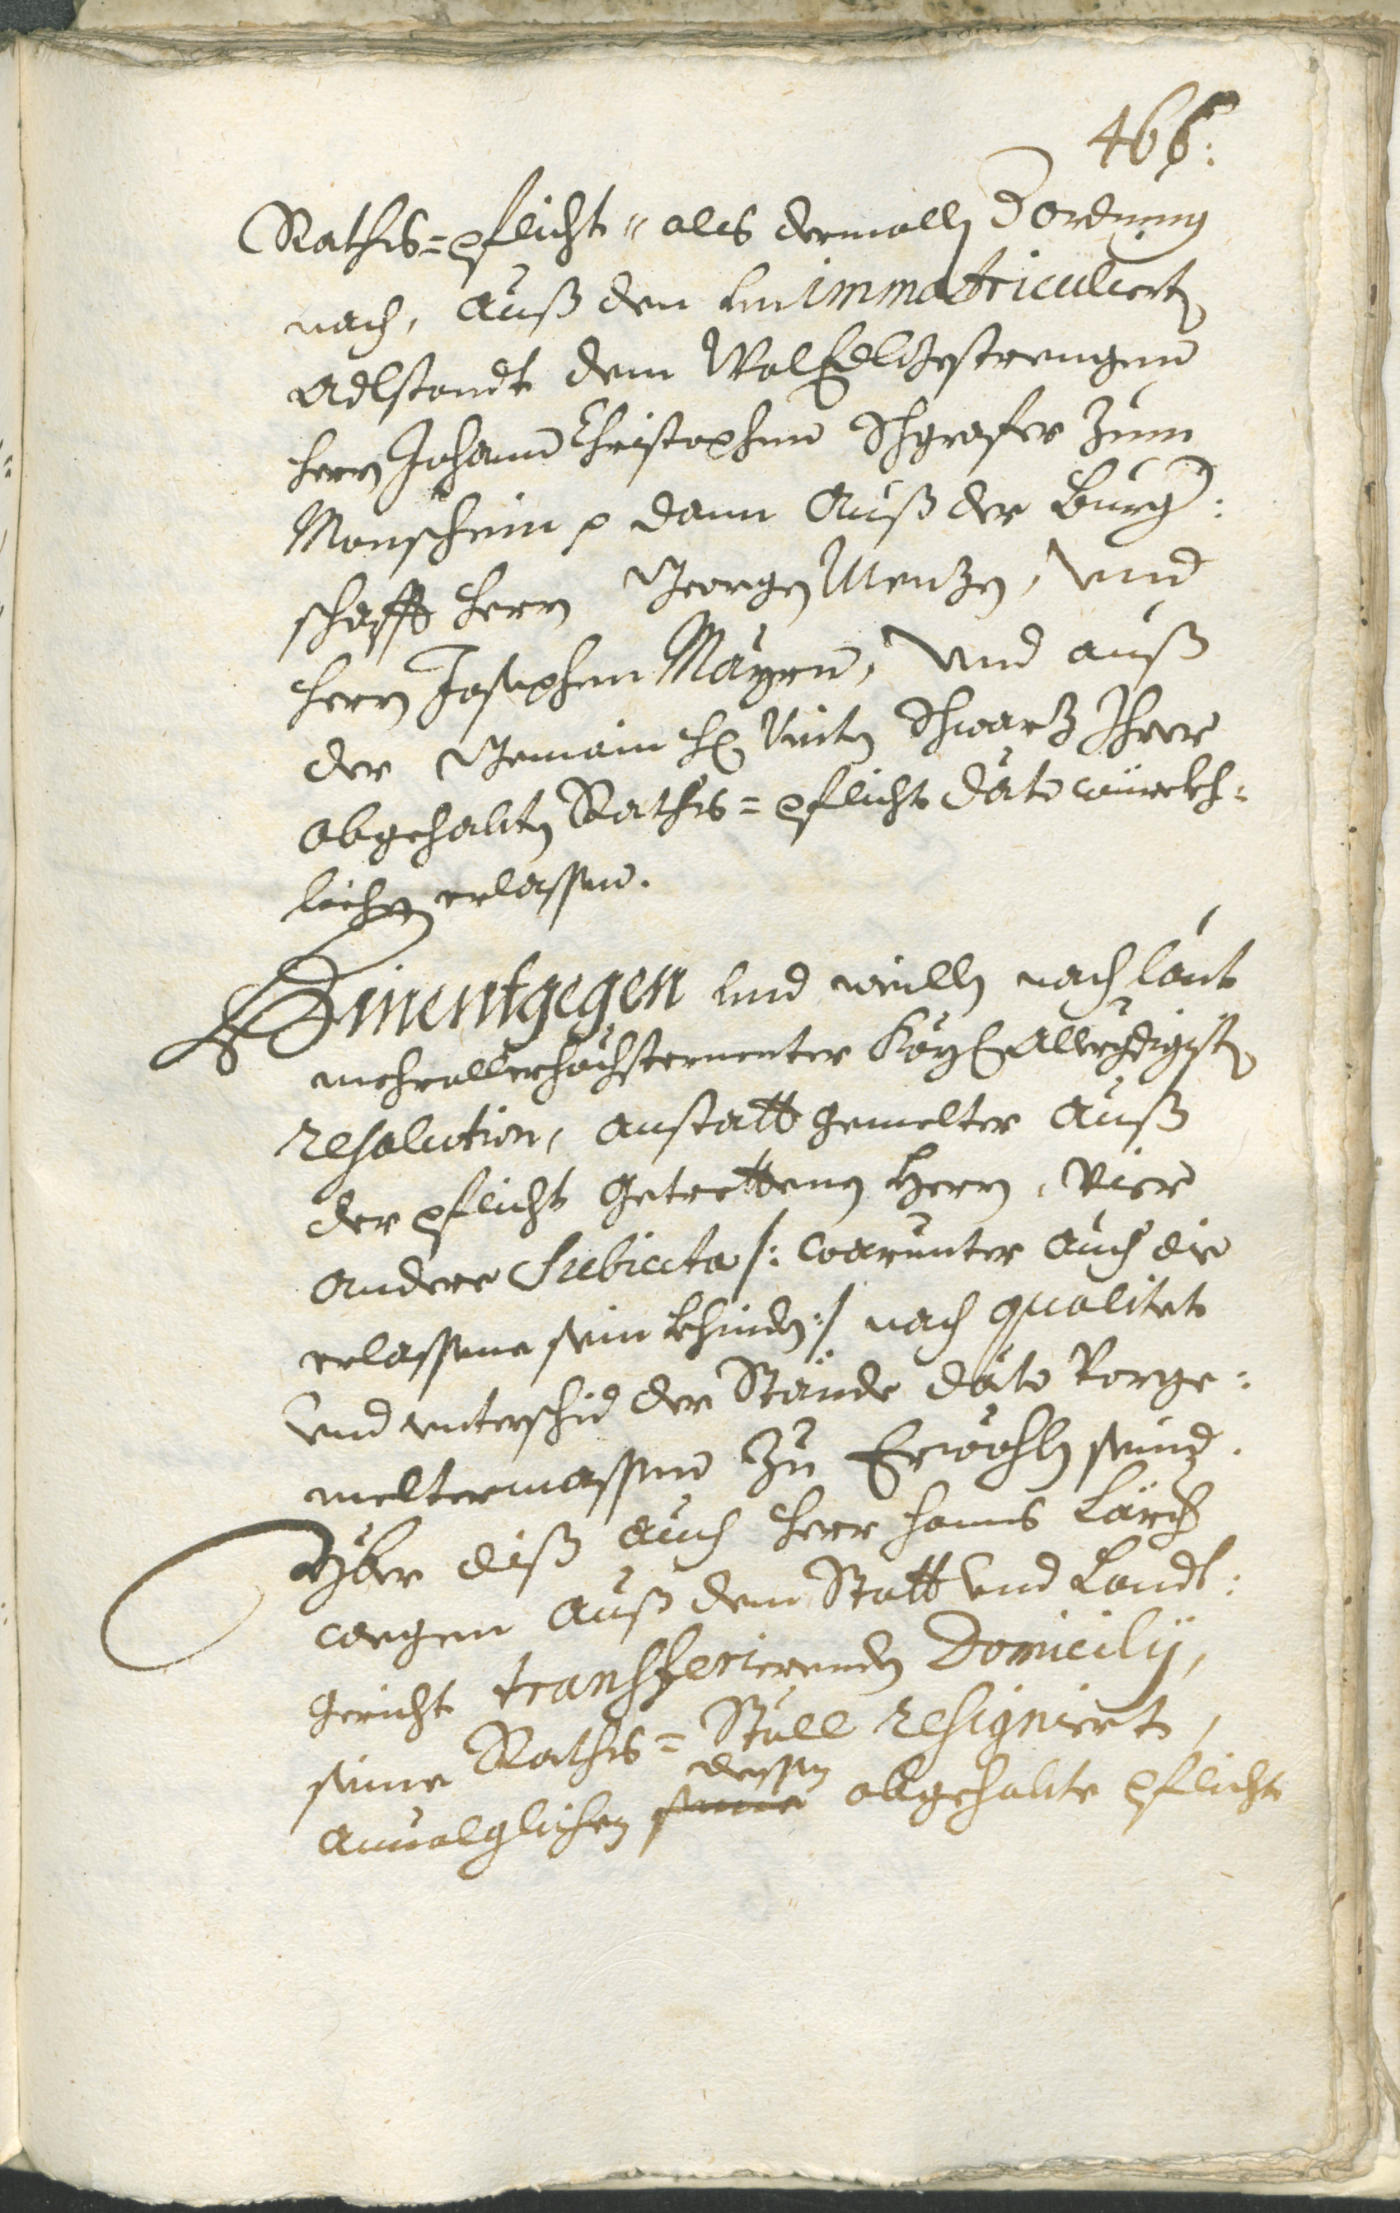 466:
Raths=pflicht " als dermalln Dordnung
nach, auß den immatriculiert
Adlstandt dem WolEdlGestrengen
herrn Johann Christophen Schgrafer zum
Monschein p dann auß der Burg:
schafft herrn Georgen Menzn, und
herrn Josephen Mayrn, und auß
der Gemain h Veitn Schwartz Ihrer
abgehabten Raths=pflicht dato würckh:
lichen erlassen.
Hinentgegen und weilln nach laut
mehrallerhöchsternenter Kay: Allergdigisten
resolution, anstatt gemelter auß
der pflicht getrettenen herrn, vier
andere Subiecta /: warunter auch die
erlassene sein khinden :/ nach qualitet
und unterschid der Stände dato Vorge:
meltermassen zu Erwöhln seind.
Yber diß auch herr hanns Lärch
wegen auß dem Statt und Landt:
gericht transferierenden Domicilÿ,
seine Raths=Stuell resigniert,
annalglichen seine dessen abgehabte pflicht